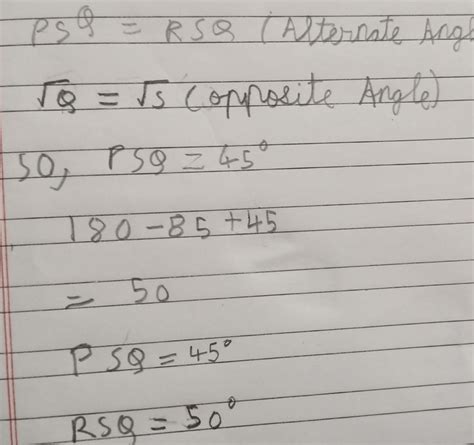 PSQ = RSQ (Alternate Angl
√Q = √S (opposite Angle)
SO, PSQ = 45°
180 - 85 + 45
= 50
PSQ = 45°
RSQ = 50°